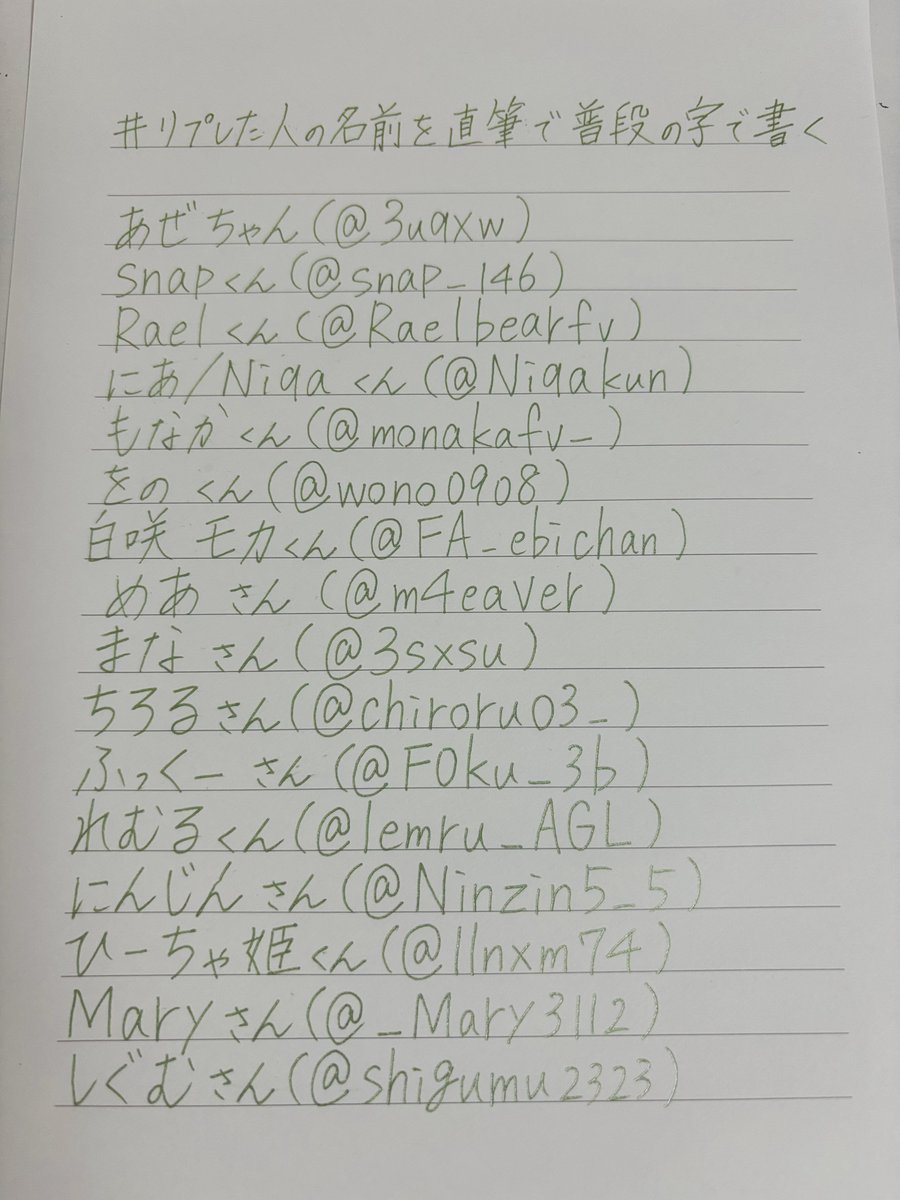 #リプした人の名前を直筆で普段の字で書く
あぜちゃん(@3uqxw)
snapくん(@snap_146)
Raelくん(@Raelbearfv)
にあ/Niqaくん(@Niqakun)
もなかくん(@monakafv_)
をのくん(@wono0908)
白咲 モカくん(@FA_ebichan)
めあさん(@m4eaver)
まなさん(@3sxsu)
ちろるさん(@chiroru03_)
ふっくーさん(@F0ku_3b)
れむるくん(@lemru_AGL)
にんじんさん(@Ninzin5_5)
ひーちゃ姫くん(@llnxm74)
Maryさん(@_Mary3112)
しぐむさん(@shigumu2323)